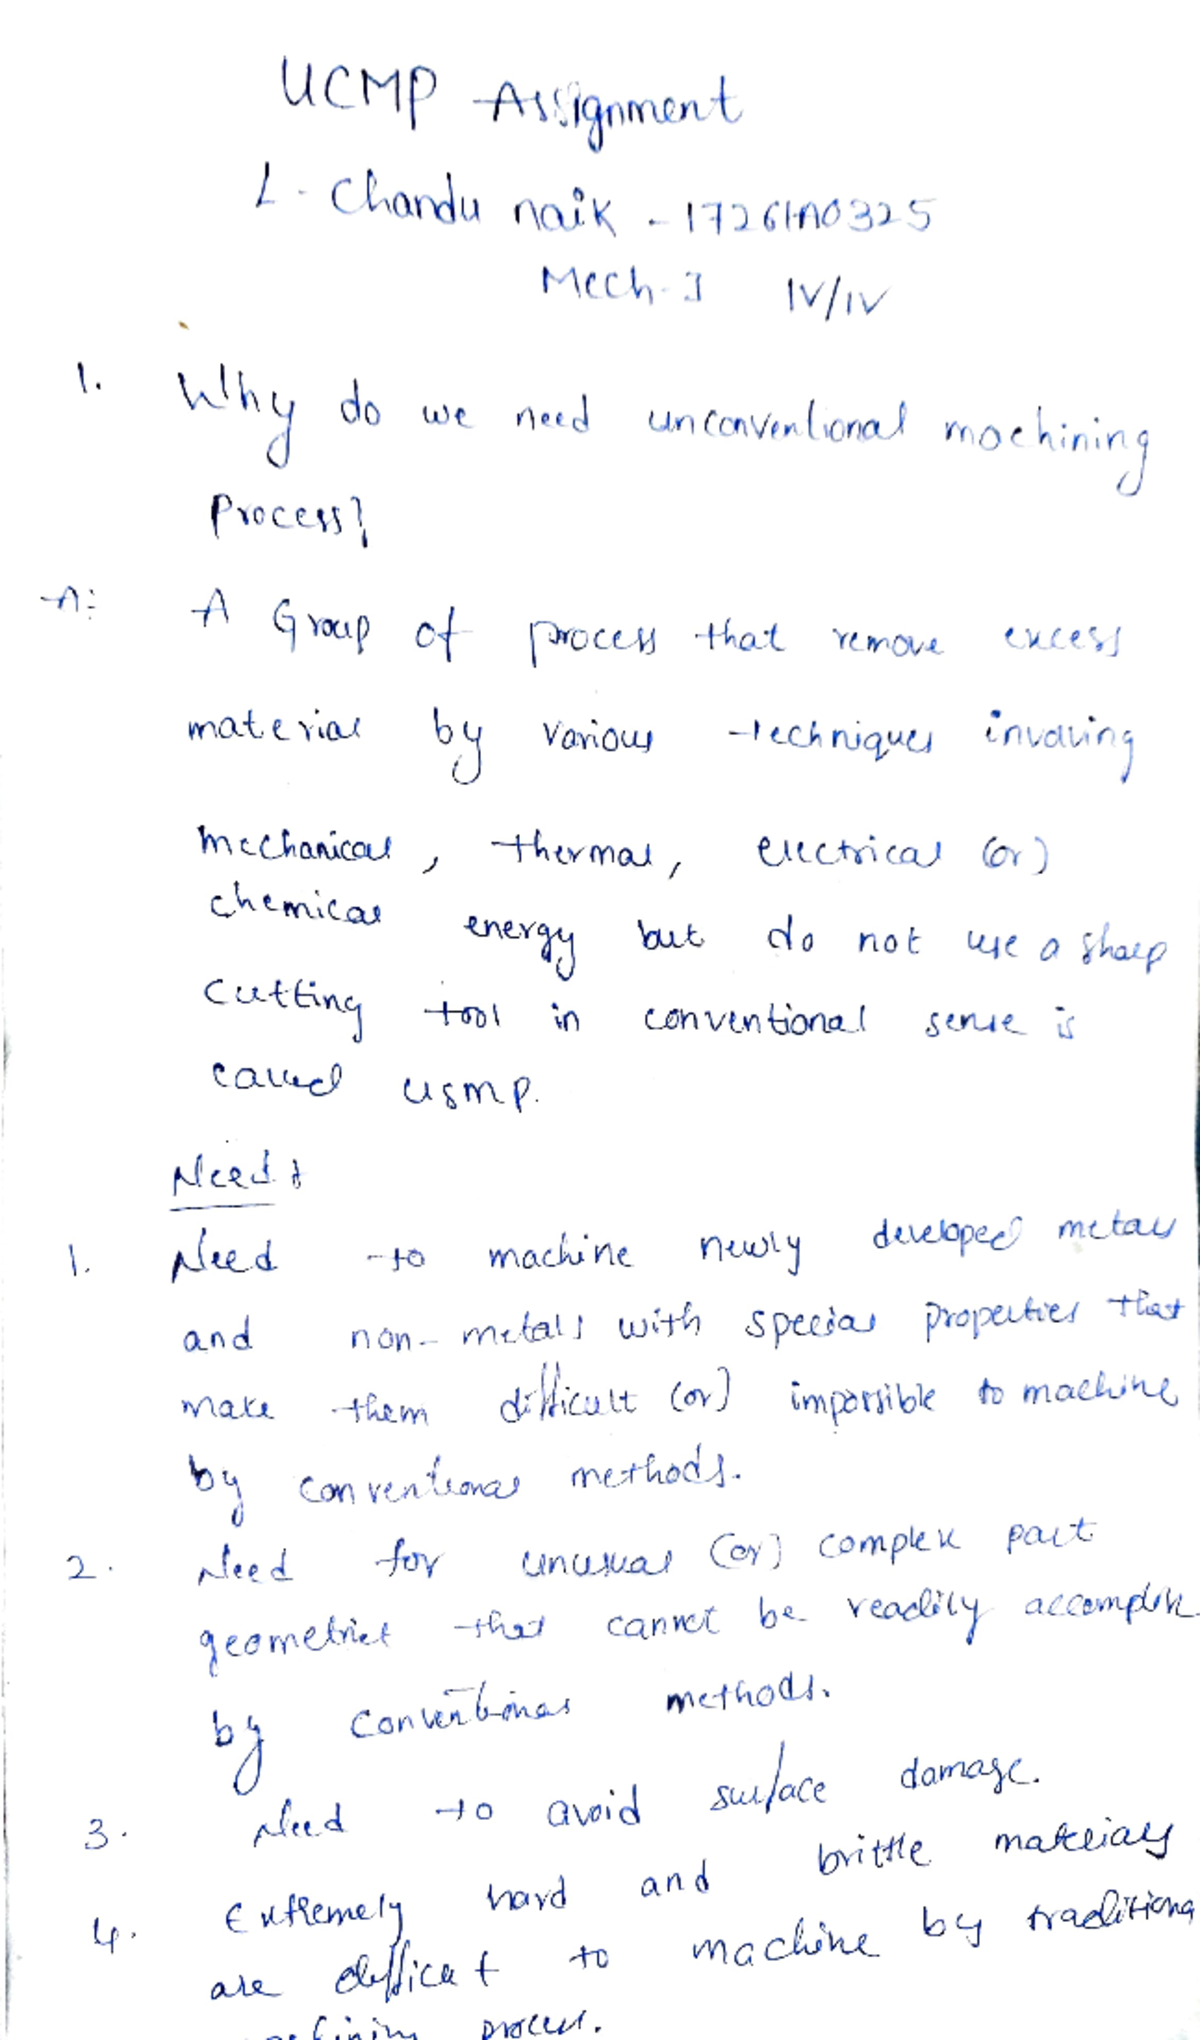 UCMP Assignment
L. Chandu naik - 17261A0325
Mech-I IV/IV
1. Why do we need unconventional machining
Process?
A: A Group of process that remove excess
material by various techniques involving
mechanical, thermal, electrical (or)
chemical energy but do not use a sharp
cutting tool in conventional sense is
called USMP.
Need:
1. Need to machine newly developed metals
and non-metals with special properties that
make them difficult (or) impossible to machine
by conventional methods.
2. Need for unusual (or) complex part
geometries that cannot be readily accomplish
by conventional methods.
3. Need to avoid surface damage.
4. Extremely hard and brittle materials
are difficult to machine by traditiona
process.